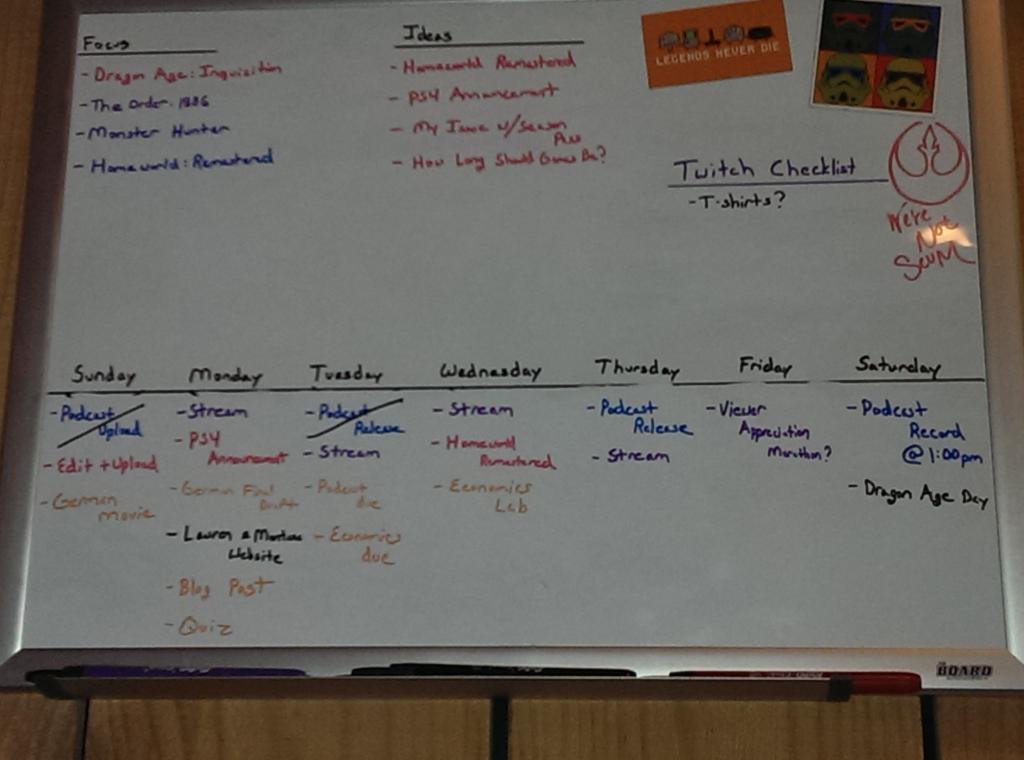 Focus
- Dragon Age: Inquisition
- The Order: 1886
- Monster Hunter
- Homeworld: Remastered
Ideas
- Homeworld Remastered
- PS4 Announcement
- My Issue w/Season
Pass
- How Long Should Games Be?
LEGENDS NEVER DIE
Twitch Checklist
- T-shirts?
We're
Not
Scum
Sunday
- Podcast
Upload
- Edit + Upload
- German
Movie
Monday
- Stream
- PS4
Announcement
- German Final
Draft
- Lauren & 
Website
- Blog Post
- Quiz
Tuesday
- Podcast
Release
- Stream
- Podcast
due
- Economics
due
Wednesday
- Stream
- Homeworld
Remastered
- Economics
Lab
Thursday
- Podcast
Release
- Stream
Friday
- Viewer
Appreciation
Marathon?
Saturday
- Podcast
Record
@ 1:00pm
- Dragon Age Day
THE BOARD